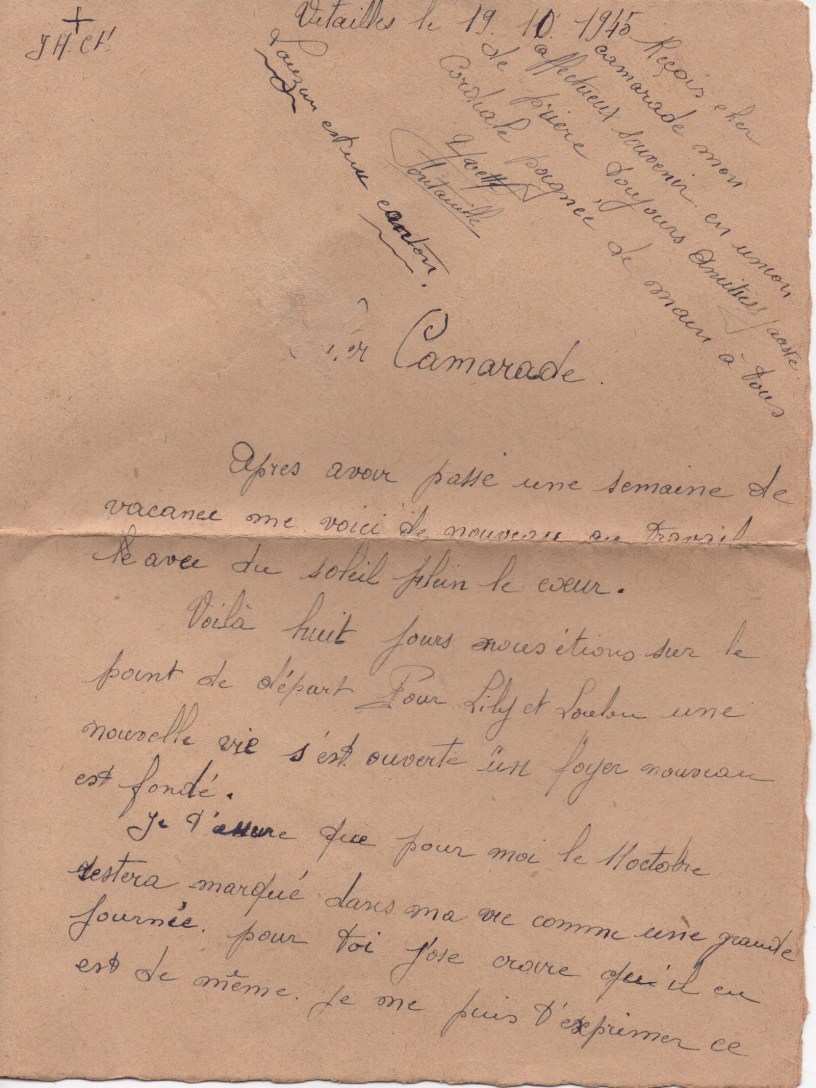 +
J H. Ch!
Vitailles le 19. 10. 1945.
Reçois cher
camarade mon
affectueux souvenir en union
de prière toujours Amitiés
Cordiale poignée de main à tous
Lauzun est un canton.
Camarade.
Après avoir passé une semaine de
vacance me voici de nouveau au travail
avec du soleil plein le cœur.
Voilà huit jours nous étions sur le
point de départ Pour Lily et Loulou une
nouvelle vie s'est ouverte un foyer nouveau
est fondé.
Je t'assure que pour moi le 11 octobre
restera marqué dans ma vie comme une grande
journée. pour toi j'ose croire qu'il en
est de même. je me puis t'exprimer ce